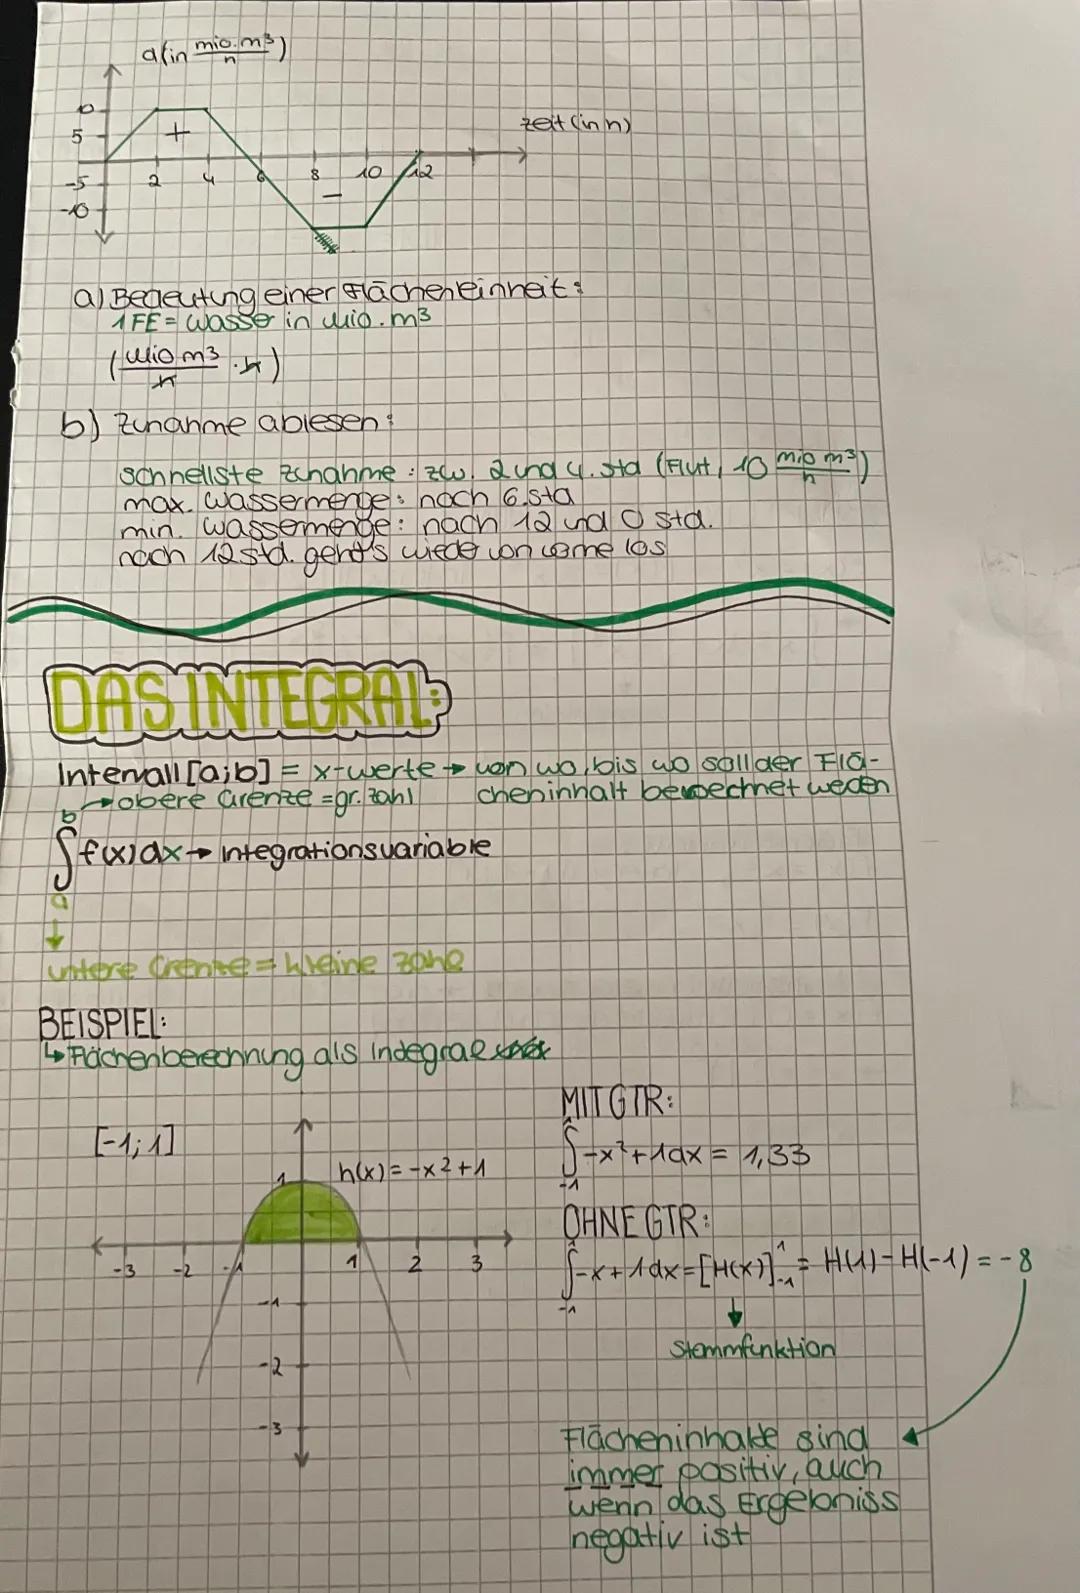 a(in mio.m³/h)
10
5
zeit (in h)
+
-5
2
4
6
8
10
12
-
-10
a) Bedeutung einer Flächeneinheit:
1 FE = Wasser in Mio. m³
(Mio m³/h · h)
b) Zunahme ablesen:
schnellste Zunahme: zw. 2 und 4. sta (Flut, 10 mio m³/h)
max. Wassermenge: nach 6. sta
min. Wassermenge: nach 12 und 0 std.
nach 12 std. geht's wiede von vorne los
DAS INTEGRAL:
Intervall [a;b] = x-werte → von wo, bis wo soll der Flä-
→ obere Grenze = gr. zahl cheninhalt berechnet weden
b
∫ f(x) dx → Integrationsvariable
a
↓
untere Grenze = kleine zahl
BEISPIEL:
↳ Flächenberechnung als Indegral
MIT GTR:
[-1; 1]
∫ -x²+1 dx = 1,33
-1
h(x) = -x²+1
1
OHNE GTR:
∫ -x+1 dx = [H(x)]¹₋₁ = H(1) - H(-1) = -8
-1
-3
-2
-1
1
2
3
-1
↓
Stammfunktion
-2
-3
Flächeninhalte sind
immer positiv, auch
wenn das Ergebniss
negativ ist